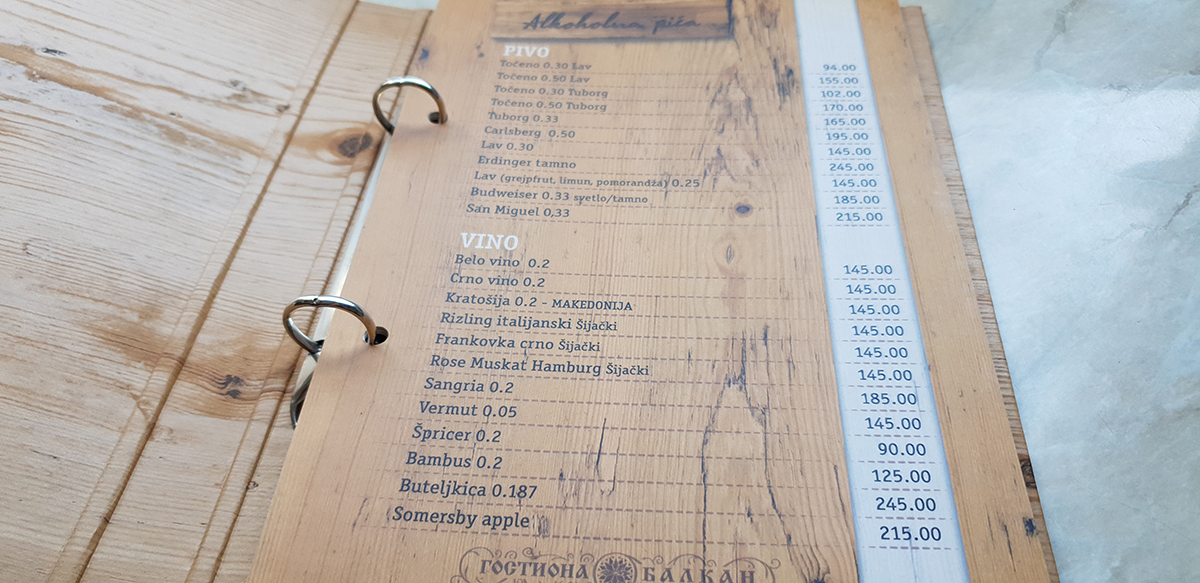 Alkoholna pića
PIVO
Točeno 0.30 Lav 94.00
Točeno 0.50 Lav 155.00
Točeno 0.30 Tuborg 102.00
Točeno 0.50 Tuborg 170.00
Tuborg 0.33 165.00
Carlsberg 0.50 195.00
Lav 0.30 145.00
Erdinger tamno 245.00
Lav (grejpfrut, limun, pomorandža) 0.25 145.00
Budweiser 0.33 svetlo/tamno 185.00
San Miguel 0,33 215.00
VINO
Belo vino 0.2 145.00
Crno vino 0.2 145.00
Kratošija 0.2 - MAKEDONIJA 145.00
Rizling italijanski Šijački 145.00
Frankovka crno Šijački 145.00
Rose Muskat Hamburg Šijački 145.00
Sangria 0.2 185.00
Vermut 0.05 145.00
Špricer 0.2 90.00
Bambus 0.2 125.00
Buteljkica 0.187 245.00
Somersby apple 215.00
ГОСТИОНА БАЛКАН